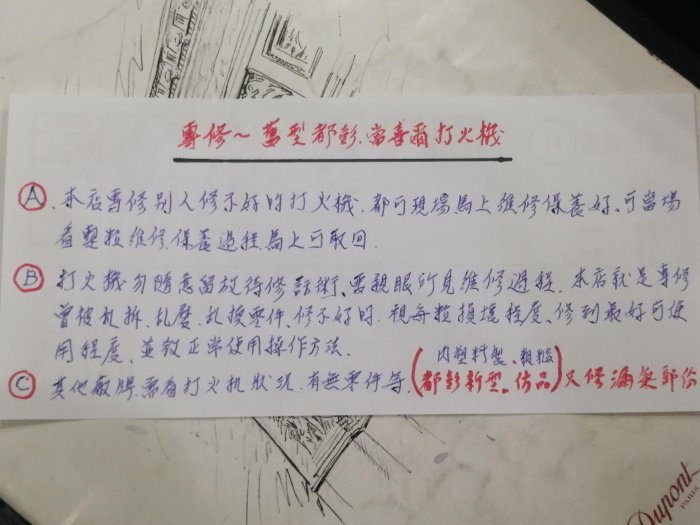 專修～舊型都彭.當喜爾打火機
Ⓐ.本店專修別人修不好的打火機.都可現場馬上維修保養好.可當場
看整粒維修.保養過程.馬上可取回.
Ⓑ 打火機勿隨意留放待修話術.要親眼所見維修過程.本店就是專修
曾被乱拆.乱磨.乱換零件.修不好的.視每粒損壞程度、修到最好可使
用程度、並教正常使用操作方法.
內塑料型、粗糙
Ⓒ 其他廠牌.需看打火机狀況.有無零件等.(都彭新型、仿品)只修漏氣部份
Dupont
PARIS